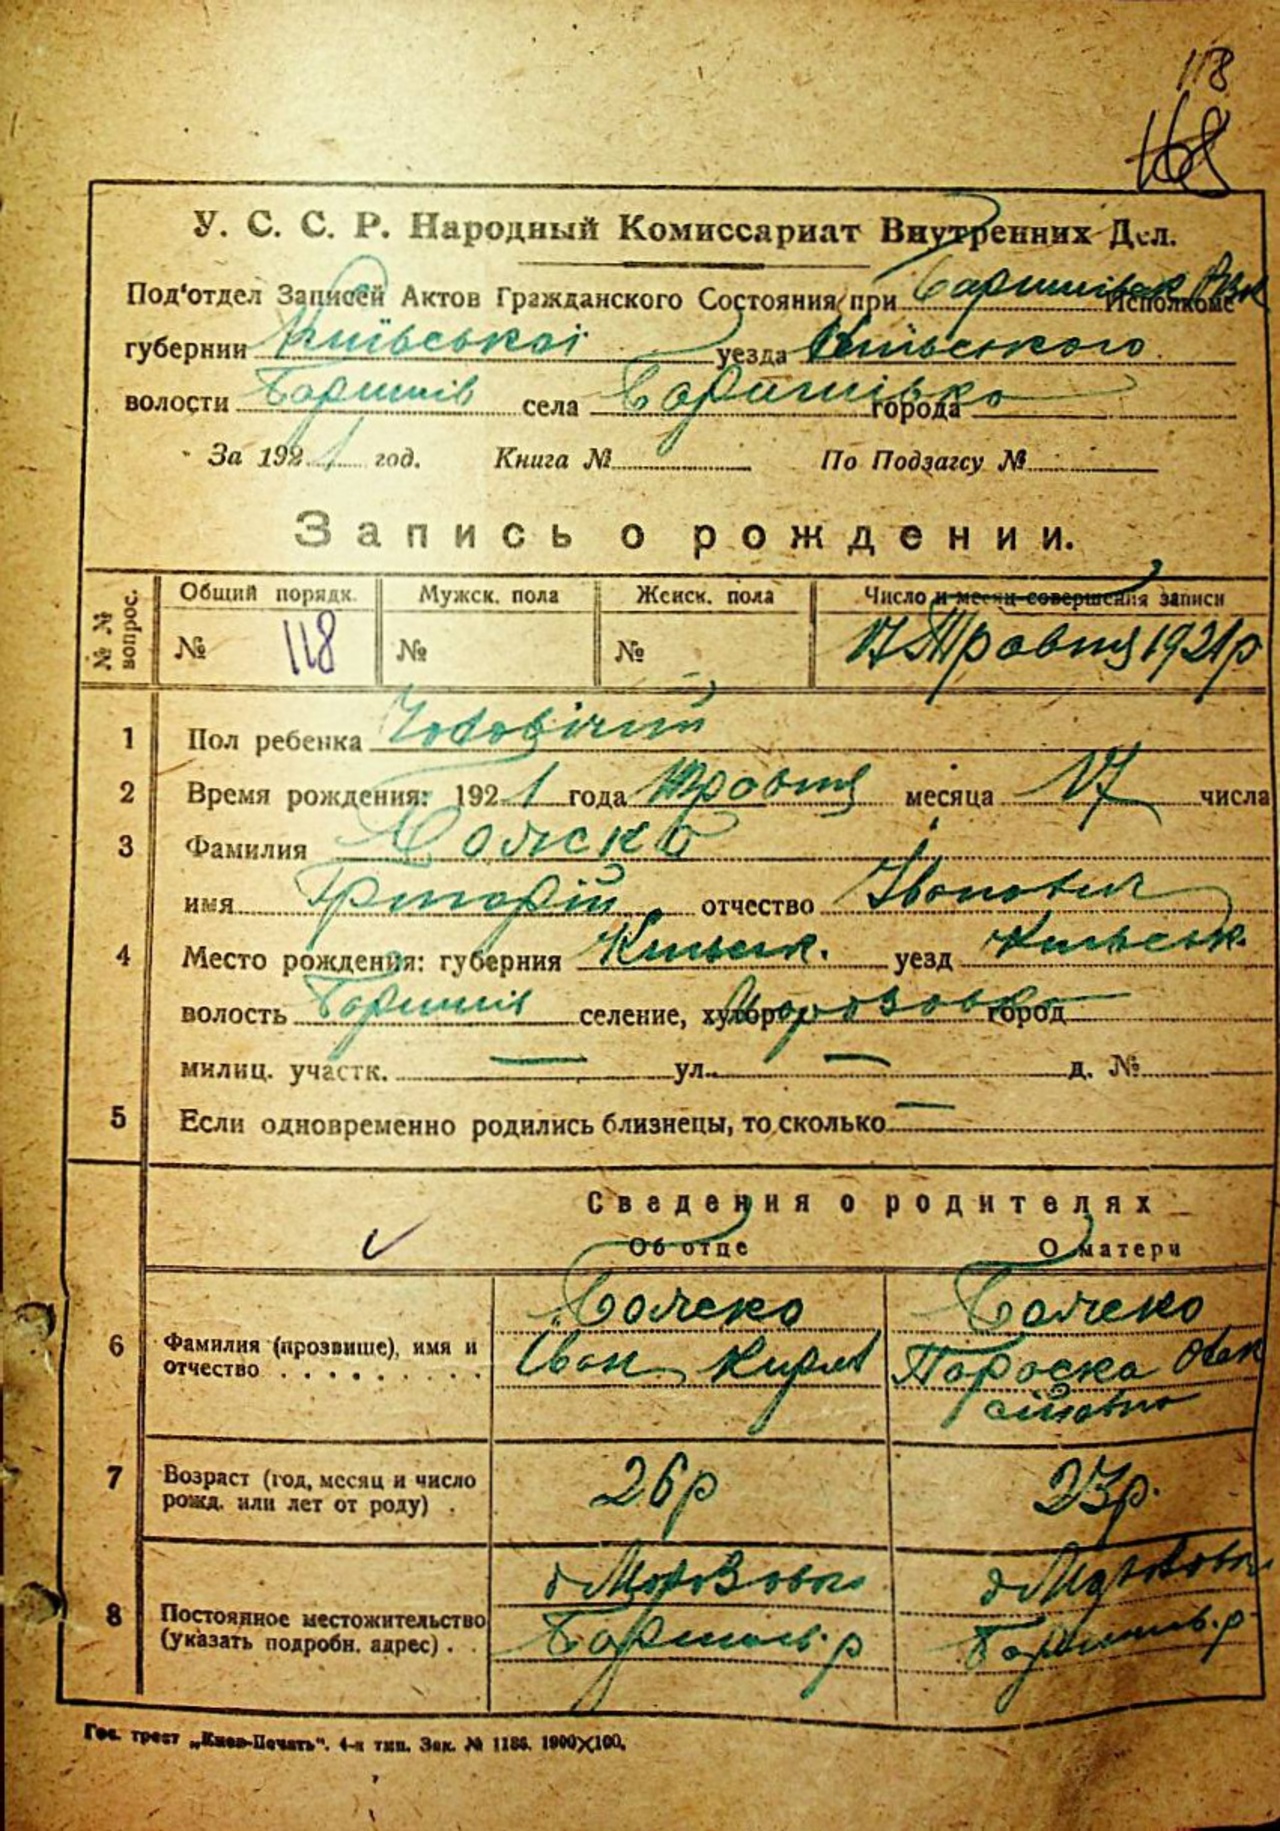 118
168
У. С. С. Р. Народный Комиссариат Внутренних Дел.
Под'отдел Записей Актов Гражданского Состояния при Исполкоме
губернии Київської уезда Київського
волости Баришів села города
За 1921 год. Книга № По Подзагсу №
Запись о рождении.
№ № вопрос. Общий порядк. Мужск. пола Женск. пола Число и месяц совершения записи
№ 118 № № 17 Травня 1921 р
1 Пол ребенка Чоловічий
2 Время рождения: 1921 года Травня месяца 17 числа
3 Фамилия
имя Григорій отчество Іванович
4 Место рождения: губерния Київськ. уезд Київськ.
волость Баришів селение, хутор Морозовка город
милиц. участк. — ул. — д. №
5 Если одновременно родились близнецы, то сколько —
Сведения о родителях
Об отце О матери
6 Фамилия (прозвище), имя и
отчество
Иван
Параска
7 Возраст (год, месяц и число
рожд. или лет от роду) . 26 р 23 р.
8 Постоянное местожительство
(указать подробн. адрес) . .
Гос. трест „Киев-Печать". 4-я тип. Зак. № 1186. 1900×100.